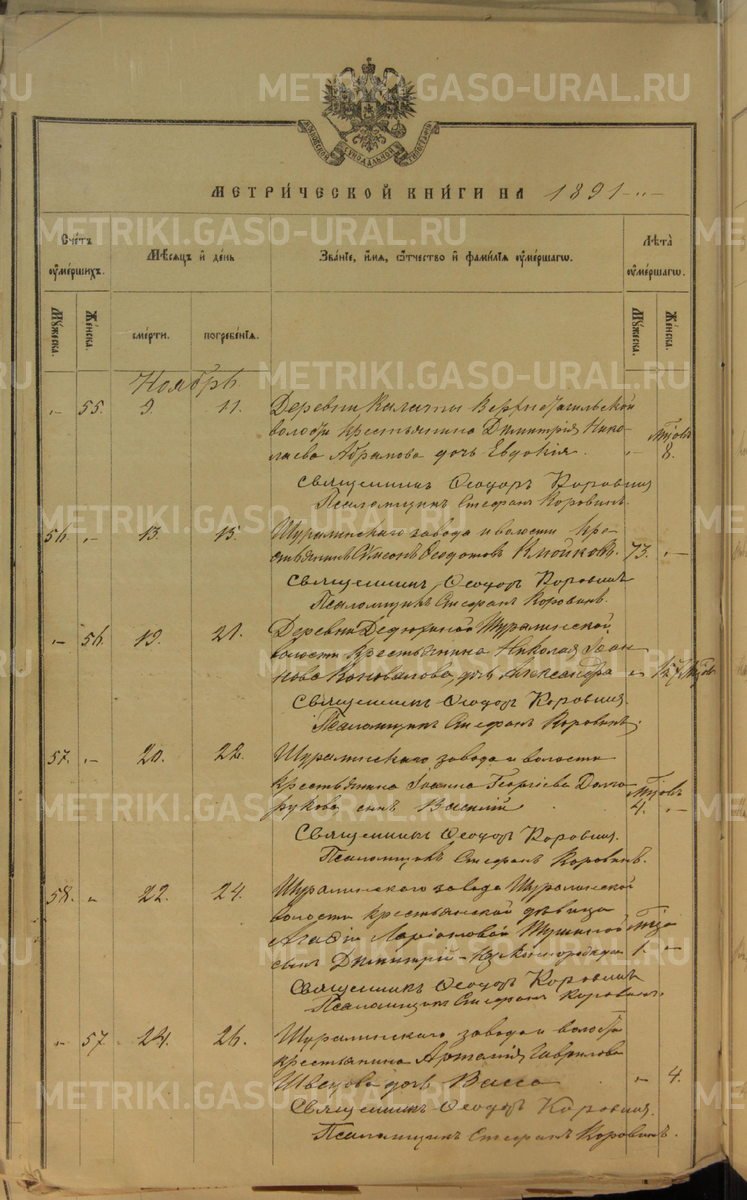 METRIKI.GASO-URAL.RU
МЕТРИ́ЧЕСКОЙ КНИ́ГИ НА 1891
Сче́тъ ᲂу҆ме́ршихъ.
Мѣ́сяцъ и҆ де́нь
Зва́нїе, и҆́мя, ѻ҆́тчество и҆ фами́лїя ᲂу҆ме́ршагѡ.
Лѣ́та ᲂу҆ме́ршагѡ.
Му́жеска. Же́нска. сме́рти. погребе́нїя. Му́жеска. Же́нска.
Ноябрь
„ 55. 9. 11. Деревни Калаты Верхнотагильской
волости крестьянина Димитрія Нико-
лаева Абрамова дочь Евдокія. „ 8.
Священникъ Ѳеодоръ Коровинъ
Псаломщикъ Стефанъ Коровинъ.
56. „ 13. 15. Шуралинскаго завода и волости кре-
стьянинъ Ѳеодотовъ Клюйковъ. 73. „
Священникъ Ѳеодоръ Коровинъ
Псаломщикъ Стефанъ Коровинъ.
„ 56. 19. 21. Деревни Шуралинской
волости крестьянина Николая Іоан-
нова Коновалова дочь Александра „
Священникъ Ѳеодоръ Коровинъ.
Псаломщикъ Стефанъ Коровинъ.
57. „ 20. 22. Шуралинскаго завода и волости
крестьянина Іоанна Георгіева Долго-
рукова сынъ Василій 4. „
Священникъ Ѳеодоръ Коровинъ.
Псаломщикъ Стефанъ Коровинъ.
58. „ 22. 24. Шуралинскаго завода Шуралинской
волости крестьянской дѣвицы
Агаѳіи Ларіоновой
сынъ Димитрій 1. „
Священникъ Ѳеодоръ Коровинъ
Псаломщикъ Стефанъ Коровинъ.
„ 57. 24. 26. Шуралинскаго завода и волости
крестьянина Артемія Гаврилова
Швецова дочь Васса „ 4.
Священникъ Ѳеодоръ Коровинъ.
Псаломщикъ Стефанъ Коровинъ.